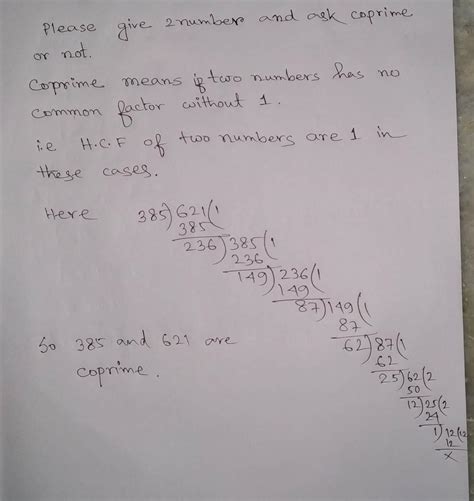 Please give 2 number and ask coprime
or not.
Coprime means if two numbers has no
common factor without 1.
i.e H.C.F of two numbers are 1 in
these cases.
Here 385)621(1
385
236)385(1
236
149)236(1
149
87)149(1
87
62)87(1
62
25)62(2
50
12)25(2
24
1)12(12
12
x
So 385 and 621 are
coprime.